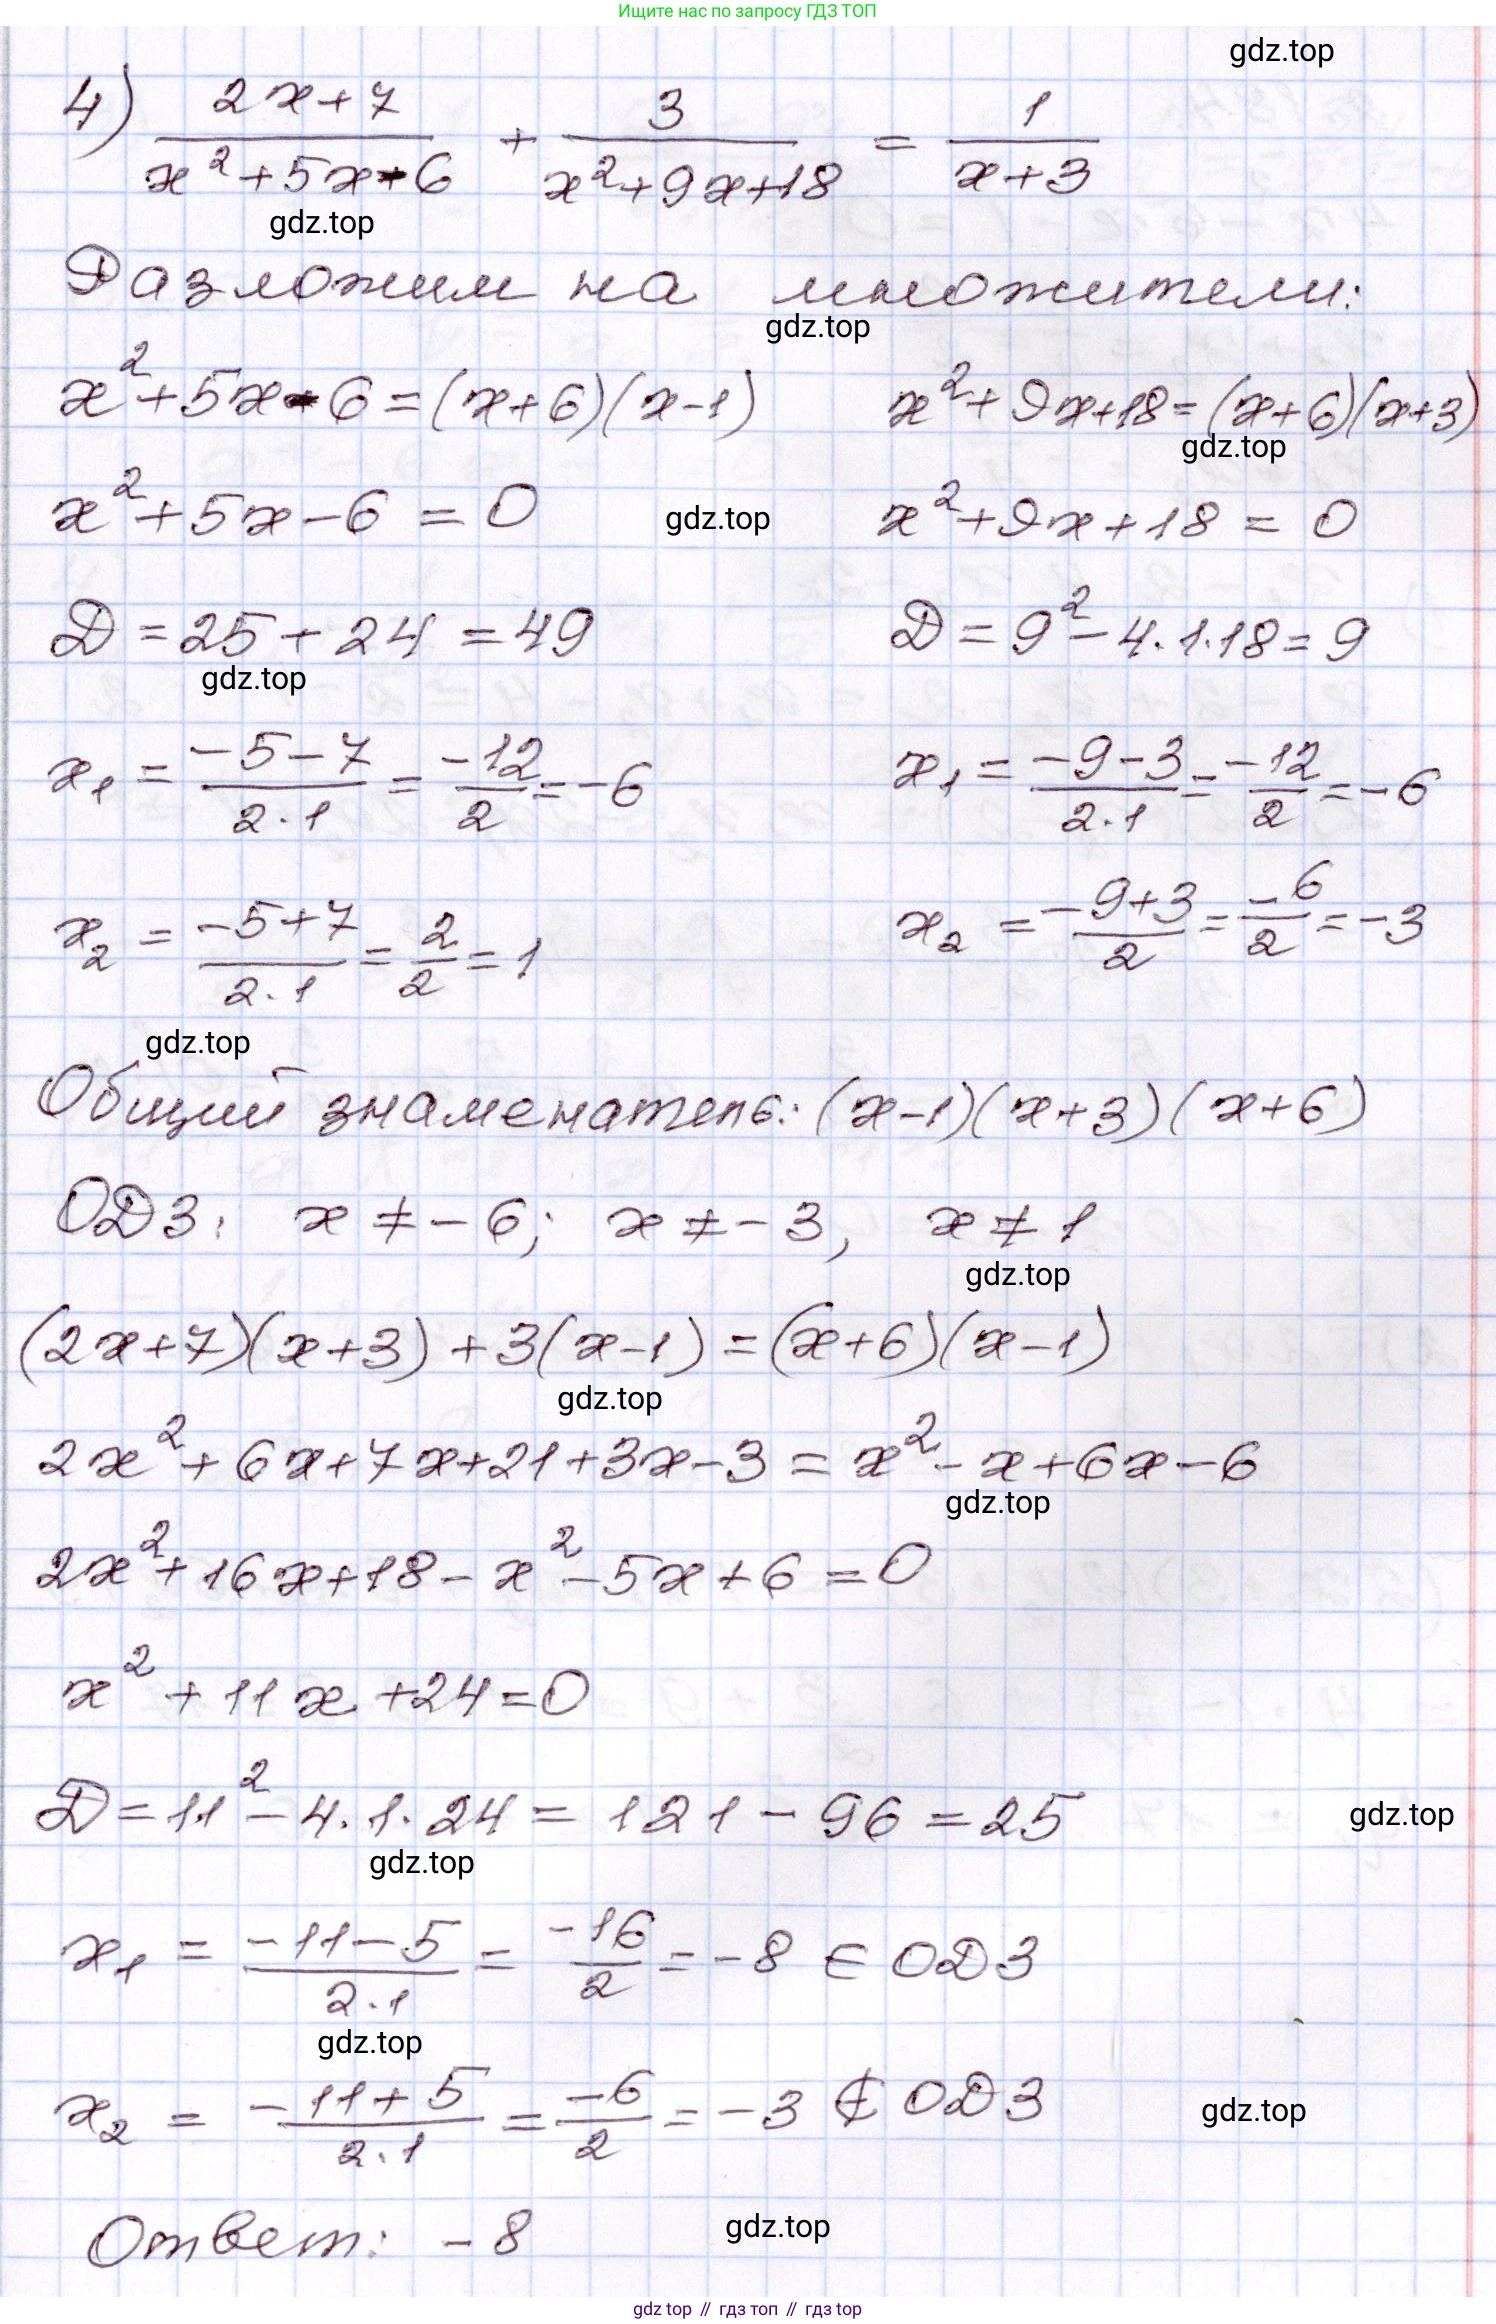 Ищите нас по запросу ГДЗ ТОП
gdz.top
4) (2x+7)/(x²+5x-6) + 3/(x²+9x+18) = 1/(x+3)
gdz.top
Разложим на множители:
gdz.top
x²+5x-6=(x+6)(x-1) x²+9x+18=(x+6)(x+3)
gdz.top
x²+5x-6=0 gdz.top x²+9x+18=0
D=25+24=49 D=9²-4·1·18=9
gdz.top
x₁=(-5-7)/(2·1)=-12/2=-6 x₁=(-9-3)/(2·1)=-12/2=-6
x₂=(-5+7)/(2·1)=2/2=1 x₂=(-9+3)/2=-6/2=-3
gdz.top
Общий знаменатель: (x-1)(x+3)(x+6)
ОДЗ: x≠-6; x≠-3, x≠1
gdz.top
(2x+7)(x+3)+3(x-1)=(x+6)(x-1)
gdz.top
2x²+6x+7x+21+3x-3=x²-x+6x-6
gdz.top
2x²+16x+18-x²-5x+6=0
x²+11x+24=0
D=11²-4·1·24=121-96=25 gdz.top
gdz.top
x₁=(-11-5)/(2·1)=-16/2=-8 ∈ ОДЗ
gdz.top
x₂=(-11+5)/(2·1)=-6/2=-3 ∉ ОДЗ gdz.top
Ответ: -8 gdz.top
gdz top // гдз топ // гдз top